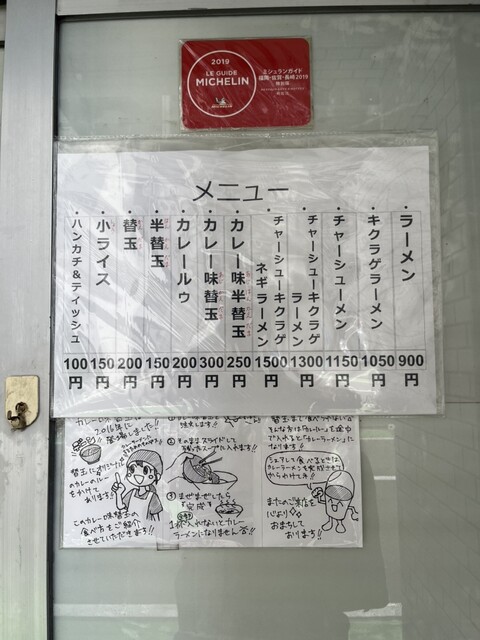 2019
LE GUIDE
MICHELIN
ミシュランガイド
福岡・佐賀・長崎2019
特別版
メニュー
・ラーメン 900円
・キクラゲラーメン 1050円
・チャーシューメン 1150円
・チャーシューキクラゲラーメン 1300円
・チャーシューキクラゲネギラーメン 1500円
・カレー味半替玉 250円
・カレー味替玉 300円
・カレールウ 200円
・半替玉 150円
・替玉 200円
・小ライス 150円
・ハンカチ&ティッシュ 100円
2016年に
登場しました!!
このカレー味替玉の
食べ方をご紹介
させていただきます!!
②そのままスライドして
③まぜまぜしたら
完成!!
ラーメンになりません
シェアして食べるときは
カレーラーメンを完成させて
からわけてネ!!
またのご来店を
心より
おまちして
おります!!